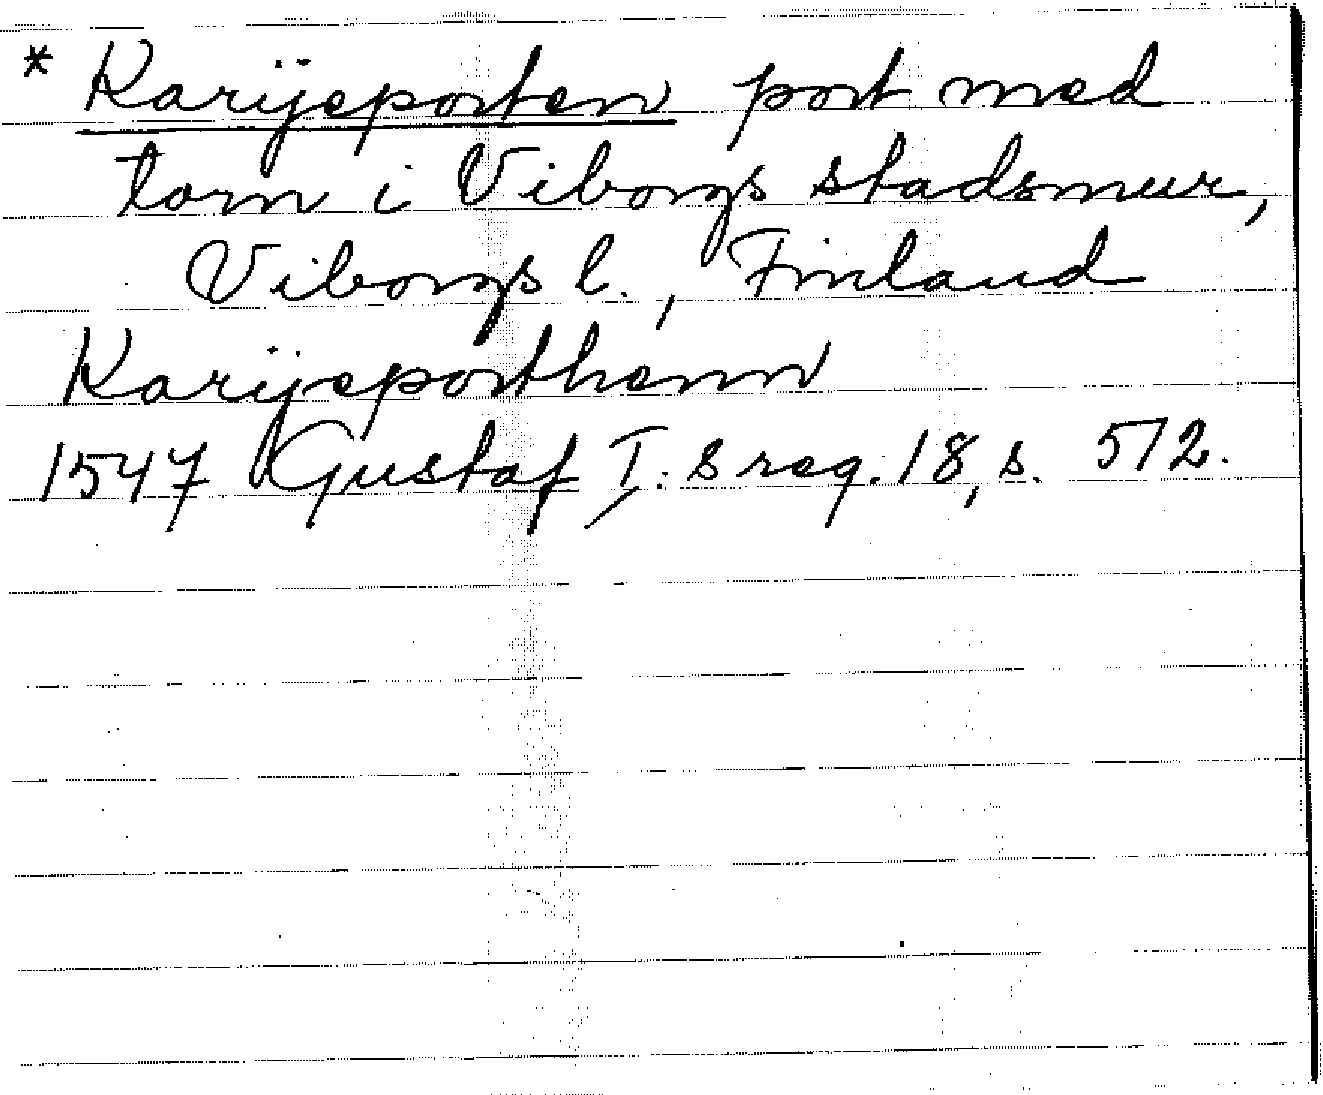 * Karijeporten port med
torn i Viborgs stadsmur,
Viborgs l., Finland
Karijeporthenn
1547 Gustaf I:s reg. 18, s. 572.